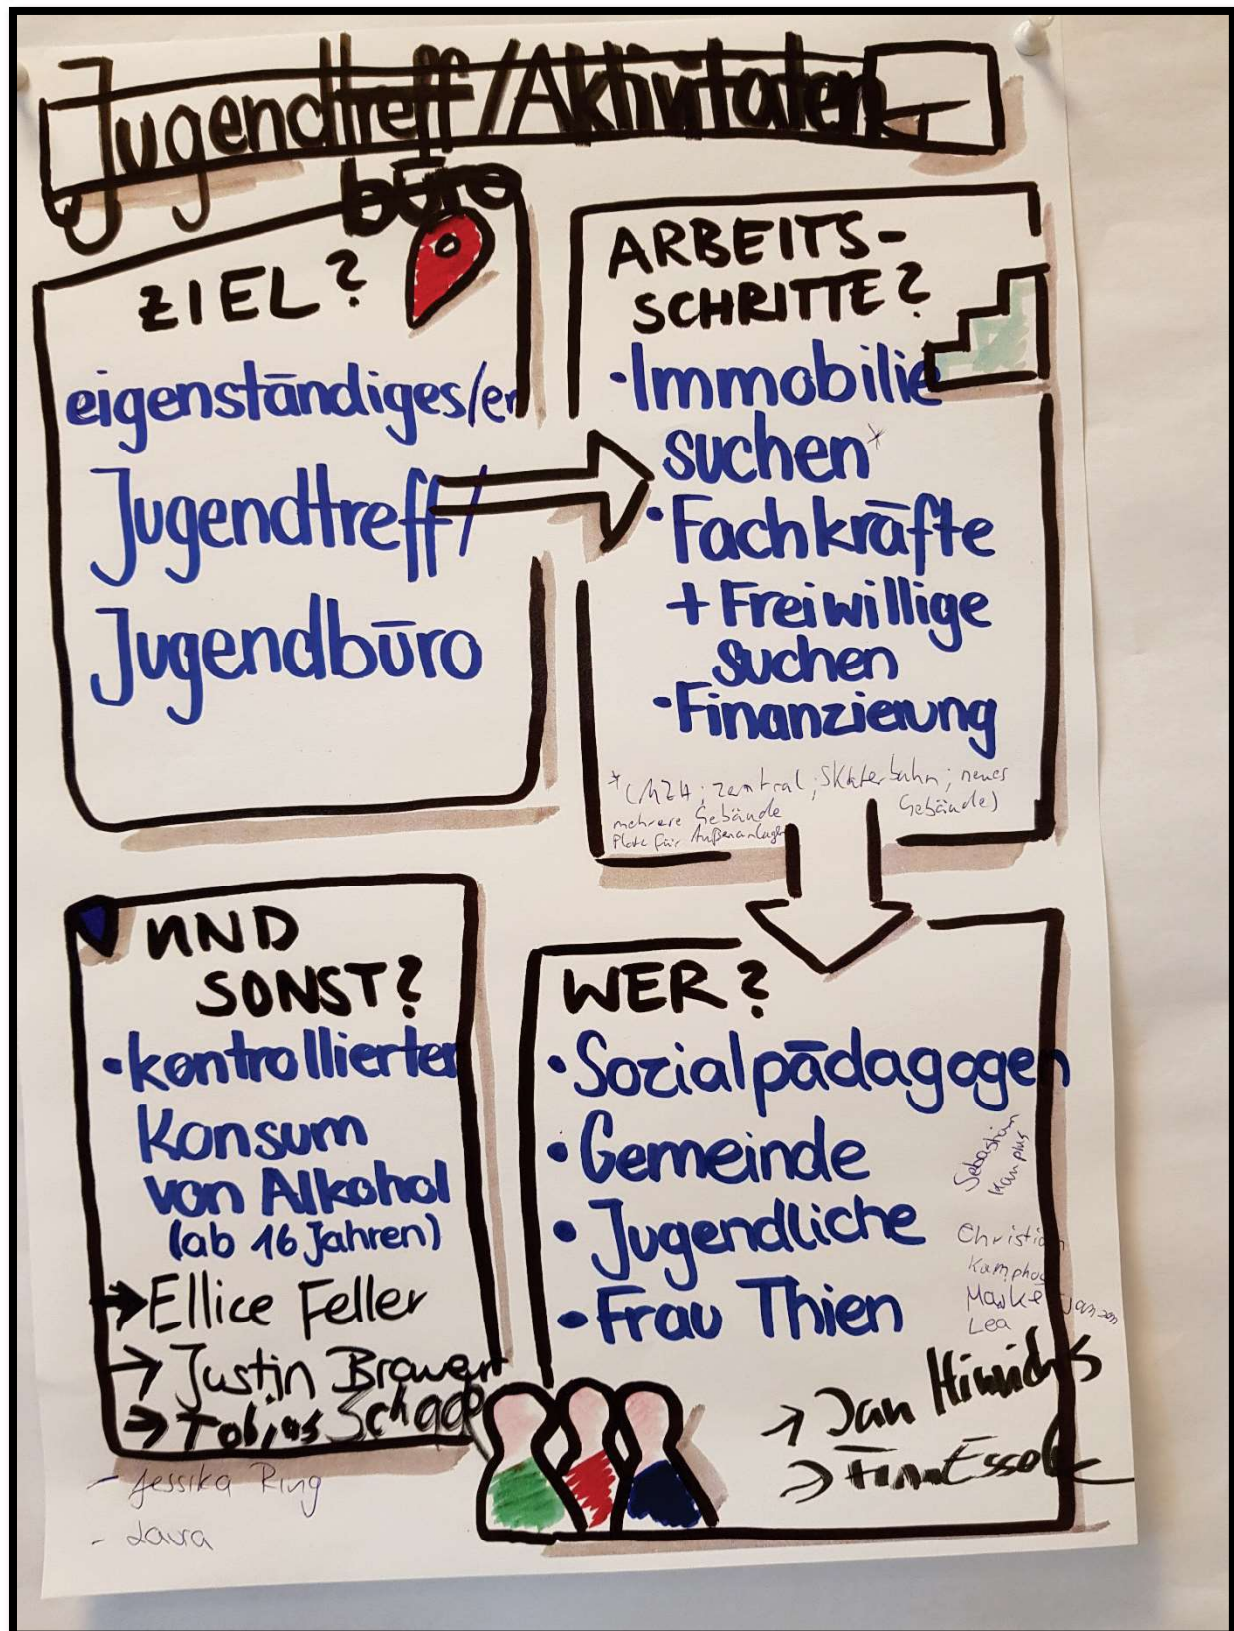 Jugendtreff/Aktivitäten
büro
ZIEL?
eigenständiges/er
Jugendtreff/
Jugendbüro
ARBEITS-
SCHRITTE?
·Immobilie
suchen*
·Fachkräfte
+ Freiwillige
suchen
·Finanzierung
*(MZH; zentral; Skaterbahn; neues
Gebäude)
mehrere Gebäude
Platz für Außenanlagen
UND
SONST?
·kontrollierter
Konsum
von Alkohol
(ab 16 Jahren)
→ Ellice Feller
→ Justin
→ Tobias
- Jessika Ring
- Laura
WER?
·Sozialpädagogen
·Gemeinde
·Jugendliche
·Frau Thien
Sebastian
Christian
Lea
→ Jan Hinrichs
→